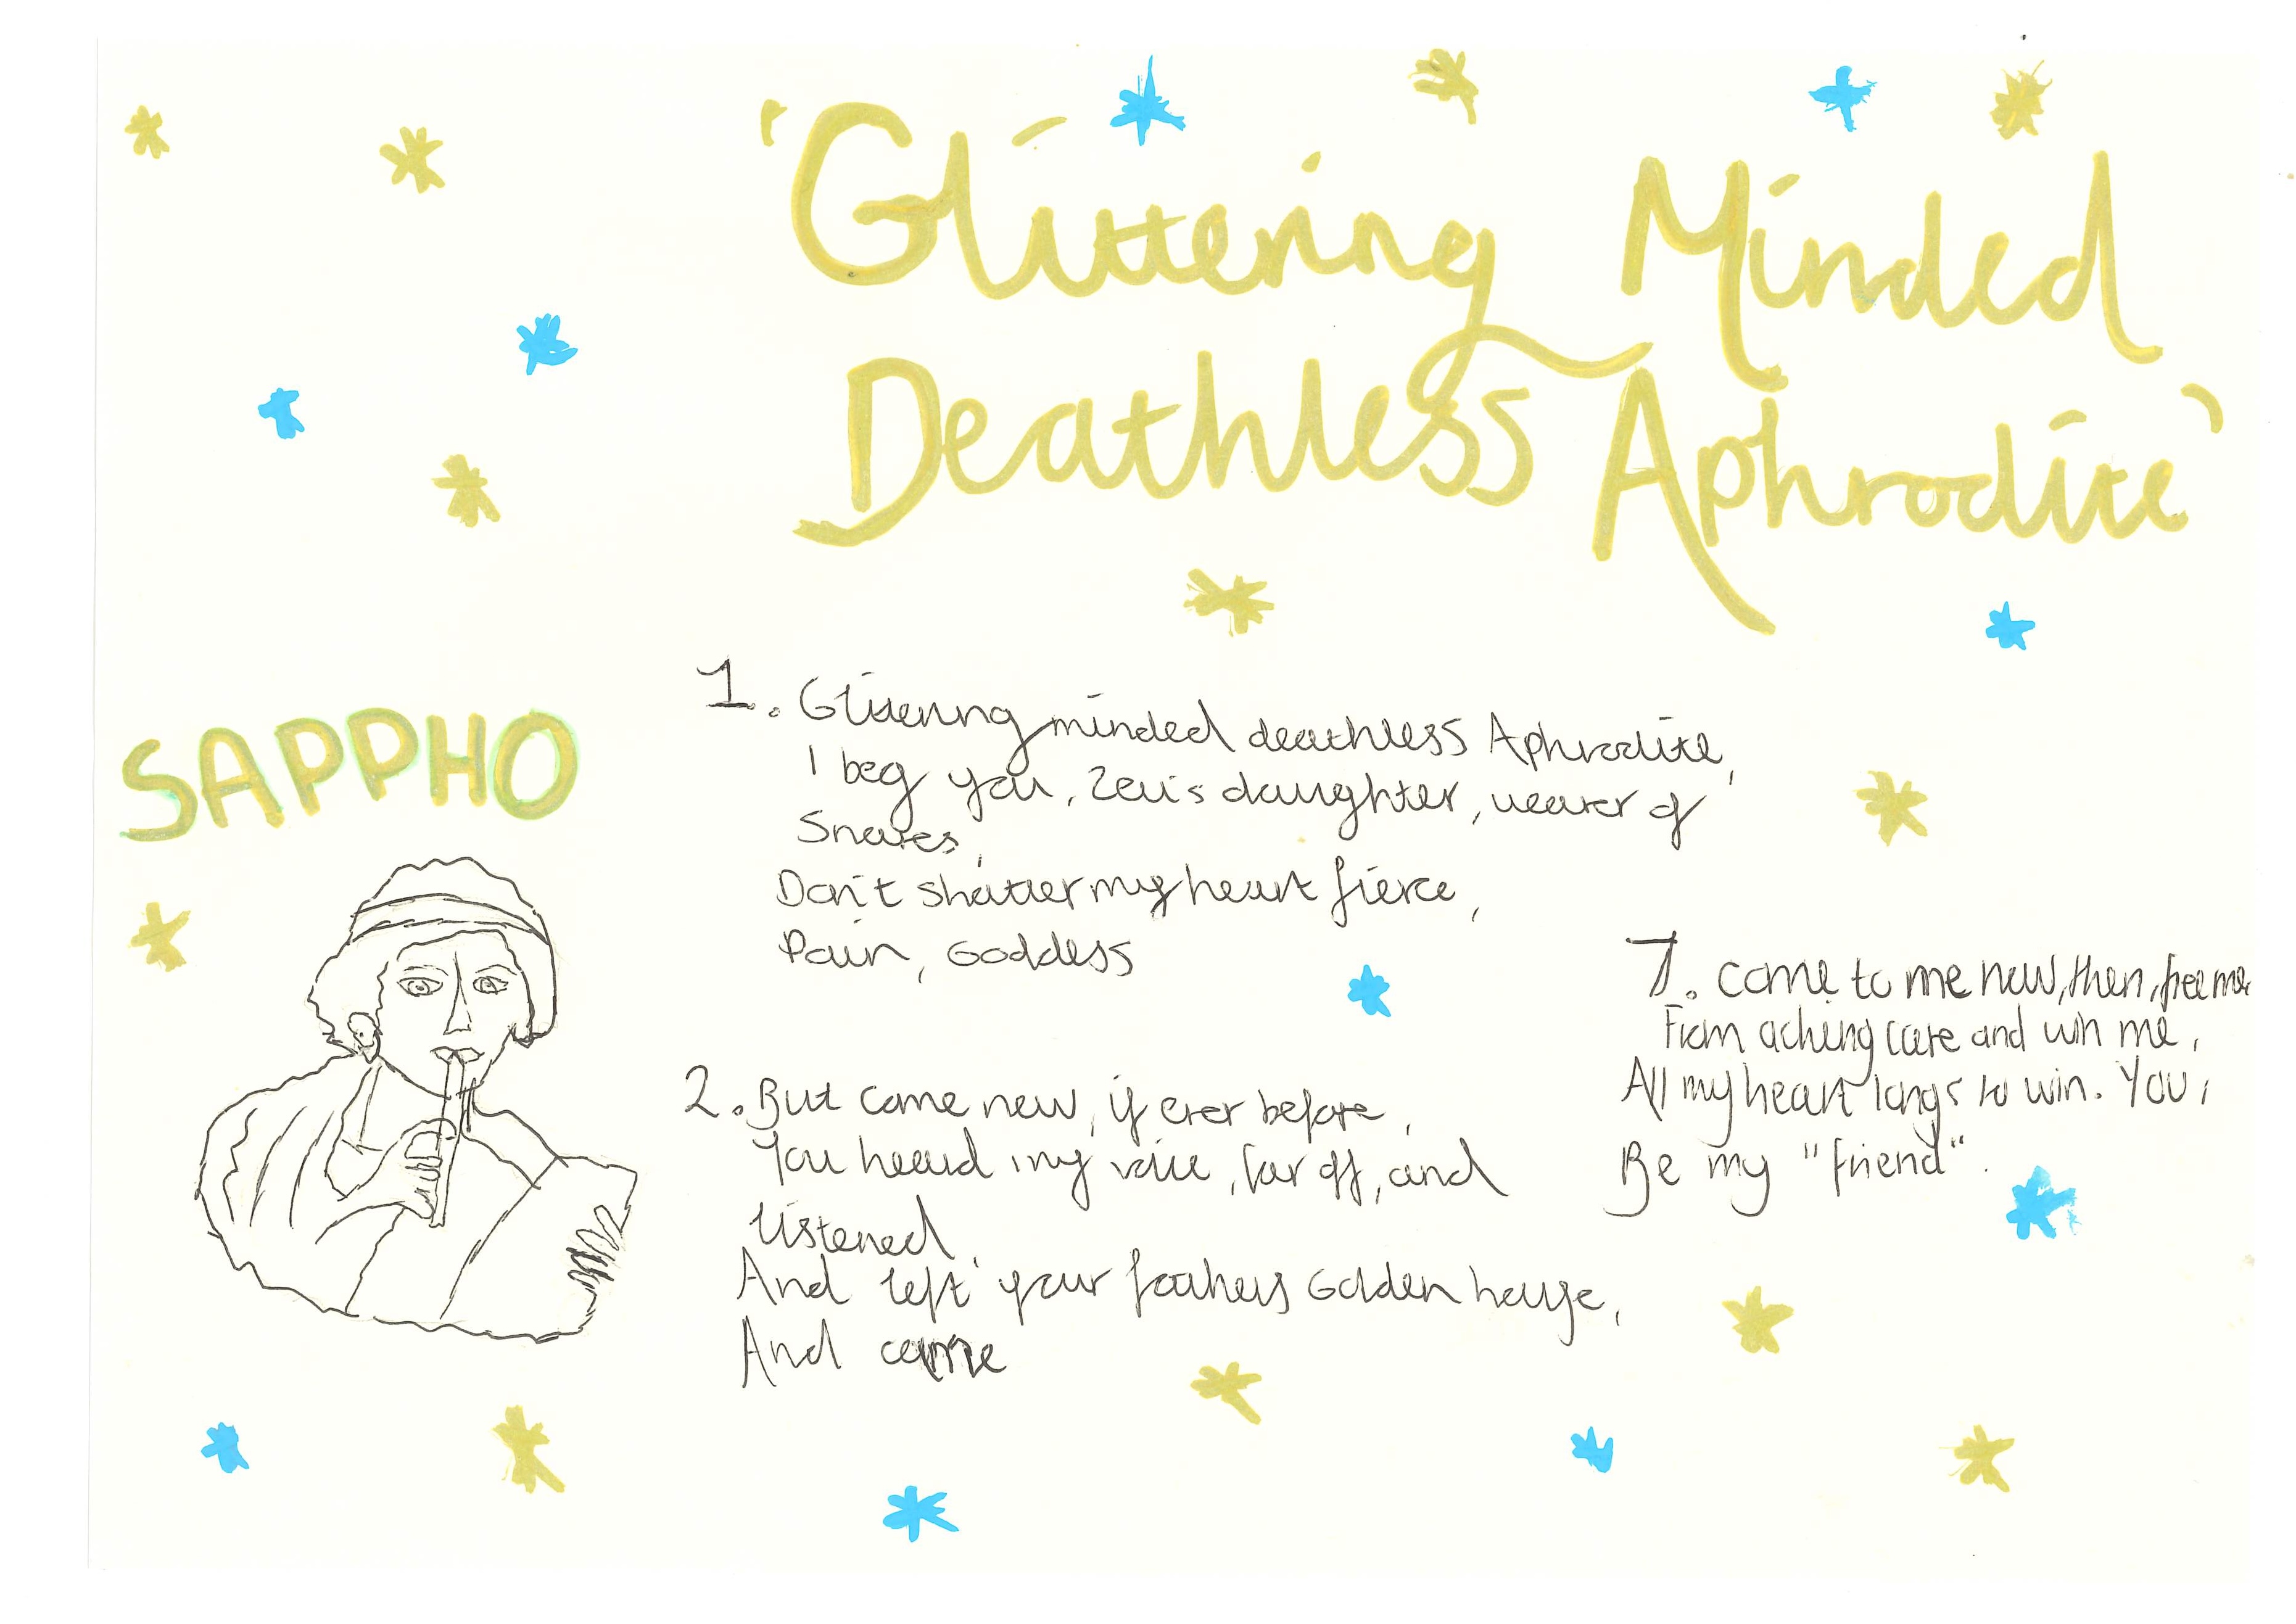 'Glittering Minded
Deathless Aphrodite'
SAPPHO
1. Glittering minded deathless Aphrodite,
I beg you, Zeus daughter, weaver of
Snares,
Don't shatter my heart fierce,
Pain, Goddess
2. But come now, if ever before,
You heard my voice, far off, and
listened,
And left your fathers Golden house,
And came
7. Come to me now, then, free me
From aching care and win me,
All my heart longs to win. You,
Be my "friend".